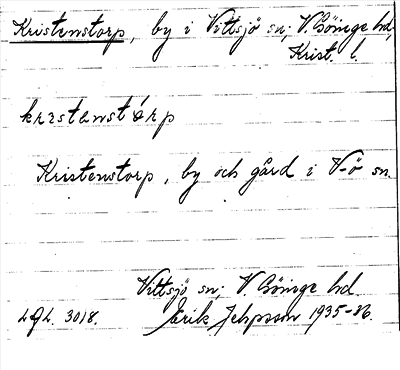 Kristenstorp, by i Vittsjö sn; V. Göinge hd,
Krist. l.
krɪstɛnstɔ́rp
Kristenstorp, by och gård i V-ö sn.
Vittsjö sn; V. Göinge hd.
3018. Erik Jeppsson 1935-36.